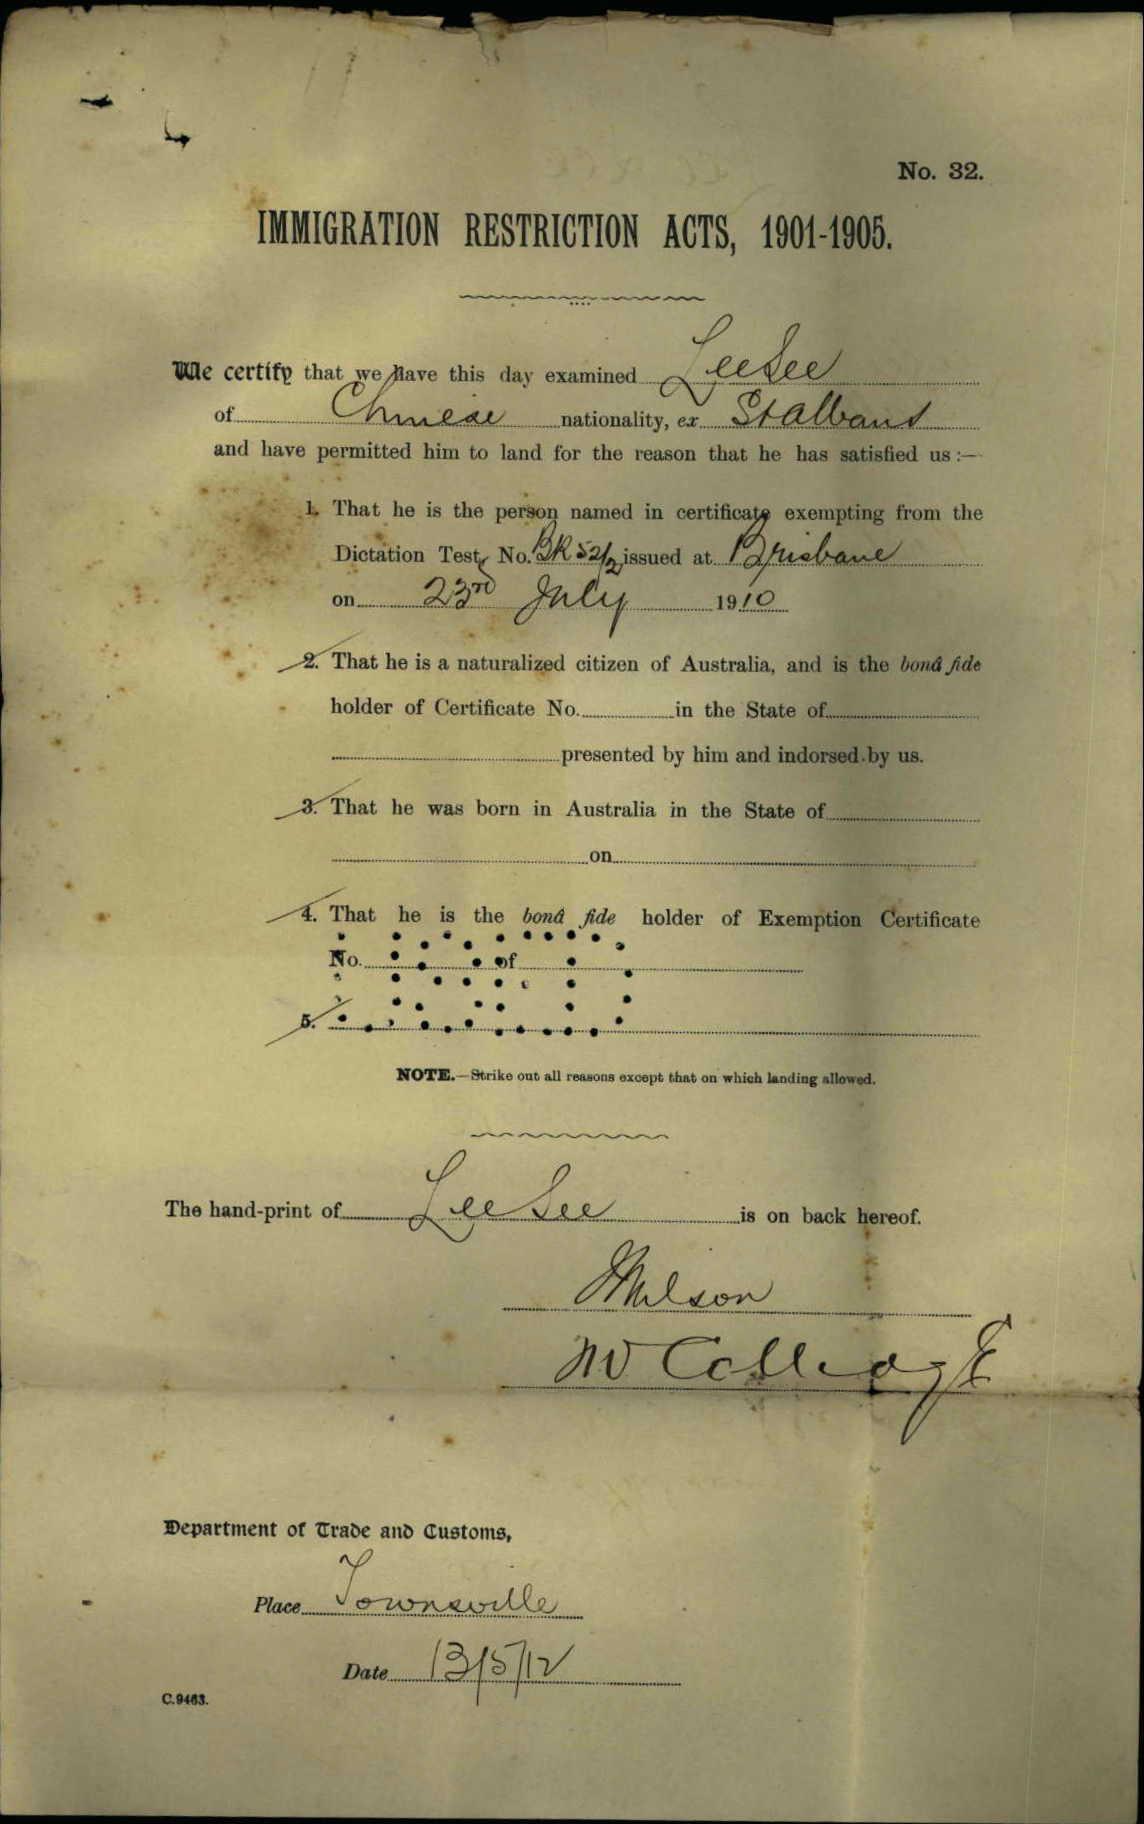 No. 32.
IMMIGRATION RESTRICTION ACTS, 1901-1905.
We certify that we have this day examined Lee See
of Chinese nationality, ex St Albans
and have permitted him to land for the reason that he has satisfied us :—
1. That he is the person named in certificate exempting from the
Dictation Test, No. BK 52/2 issued at Brisbane
on 23rd July 1910
2. That he is a naturalized citizen of Australia, and is the bonâ fide
holder of Certificate No. in the State of
presented by him and indorsed by us.
3. That he was born in Australia in the State of
on
4. That he is the bonâ fide holder of Exemption Certificate
No. of
5.
NOTE.—Strike out all reasons except that on which landing allowed.
The hand-print of Lee See is on back hereof.
Department of Trade and Customs,
Place Townsville
Date 13/5/12
C.9463.